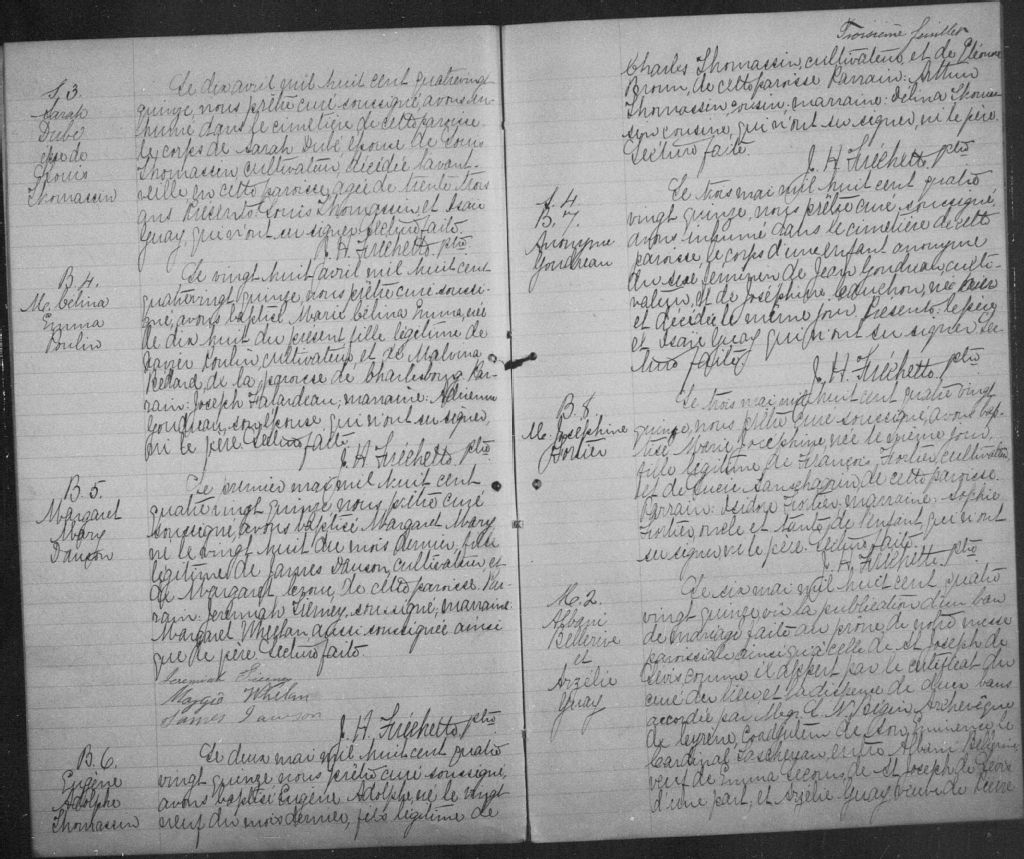 S. 3.
Sarah
Dubé
épse de
Louis
Thomassin
Le dix avril mil huit cent quatrevingt
quinze, nous prêtre curé soussigné, avons in
humé dans le cimetière de cette paroisse
le corps de Sarah Dubé épouse de Louis
Thomassin cultivateur, décédée l'avant-
veille en cette paroisse, agée de trente trois
ans Présents: Louis Thomassin, et Isaïe
Guay, qui n'ont su signer. Lecture faite.
J. H. Fréchette ptre
B. 4.
M. Célina
Emma
Poulin
Le vingt huit avril mil huit cent
quatrevingt quinze, nous prêtre curé soussi-
gné, avons baptisé Marie Célina Emma, née
le dix huit du présent fille légitime de
Poulin cultivateur, et de Malvina
Bédard, de la paroisse de Charlesbourg. Par-
rain: Joseph Falardeau; marraine: Adrienne
Gondreau, son épouse, qui n'ont su signer,
ni le père. Lecture faite.
J. H. Fréchette ptre
B. 5.
Margaret
Mary
Dawson
Le premier mai mil huit cent
quatre vingt quinze, nous prêtre curé
soussigné, avons baptisé Margaret Mary
née le vingt huit du mois dernier, fille
légitime de James Dawson, cultivateur, et
de Margaret de cette paroisse. Par-
rain: Jeremiah Tierney, soussigné, marraine:
Margaret Whellan, aussi soussignée ainsi
que le père. Lecture faite.
Jeremiah
Maggie Whelan
James Dawson
J. H. Fréchette ptre
B. 6.
Eugène
Adolphe
Thomassin
Le deux mai mil huit cent quatre
vingt quinze nous prêtre curé soussigné,
avons baptisé Eugène Adolphe, né le vingt
neuf du mois dernier, fils légitime de
Troisième feuillet
Charles Thomassin, cultivateur, et de Éléonore
Brown, de cette paroisse. Parrain: Arthur
Thomassin, cousin; marraine: Délina Thomas-
sin, cousine, qui n'ont su signer, ni le père.
Lecture faite
J. H. Fréchette ptre
S. 4.
B. 7.
Anonyme
Gondreau
Le trois mai mil huit cent quatre
vingt quinze, nous prêtre curé, soussigné,
avons inhumé dans le cimetière de cette
paroisse, le corps d'une enfant anonyme
du sexe féminin de Jean Gondreau, culti-
vateur, et de Joséphine Cauchon, née
et décédée le même jour. Présents: le père
et Isaïe Guay qui n'ont su signer Lec-
ture faite
J. H. Fréchette ptre
B. 8.
M. Joséphine
Fortier
Le trois mai mil huit cent quatre vingt
quinze, nous prêtre curé soussigné, avons bap-
tisé Marie Joséphine née le même jour,
fille légitime de François Fortier, cultivateur,
et de Lucie Sanschagrin de cette paroisse.
Parrain: Isidore Fortier, marraine: Sophie
Fortier, oncle et tante, de l'enfant, qui n'ont
su signer ni le père. Lecture faite.
J. H. Fréchette ptre
M. 2.
Albani
Bellerive
et
Arzélie
Guay
Le six mai mil huit cent quatre
vingt quinze vu la publication d'un ban
de mariage faite au prône de notre messe
paroissiale ainsi qu'à celle de St Joseph de
Lévis comme il appert par le certificat du
curé du lieu, et la dispense de deux bans
accordée par Mgr. L. N. Bégin, Archevêque
de Cyrène, Coadjuteur de Son Éminence le
Cardinal Taschereau entre Albani Bellerive,
veuf de Emma de St Joseph de Lévis
d'une part, et Arzélie Guay veuve de